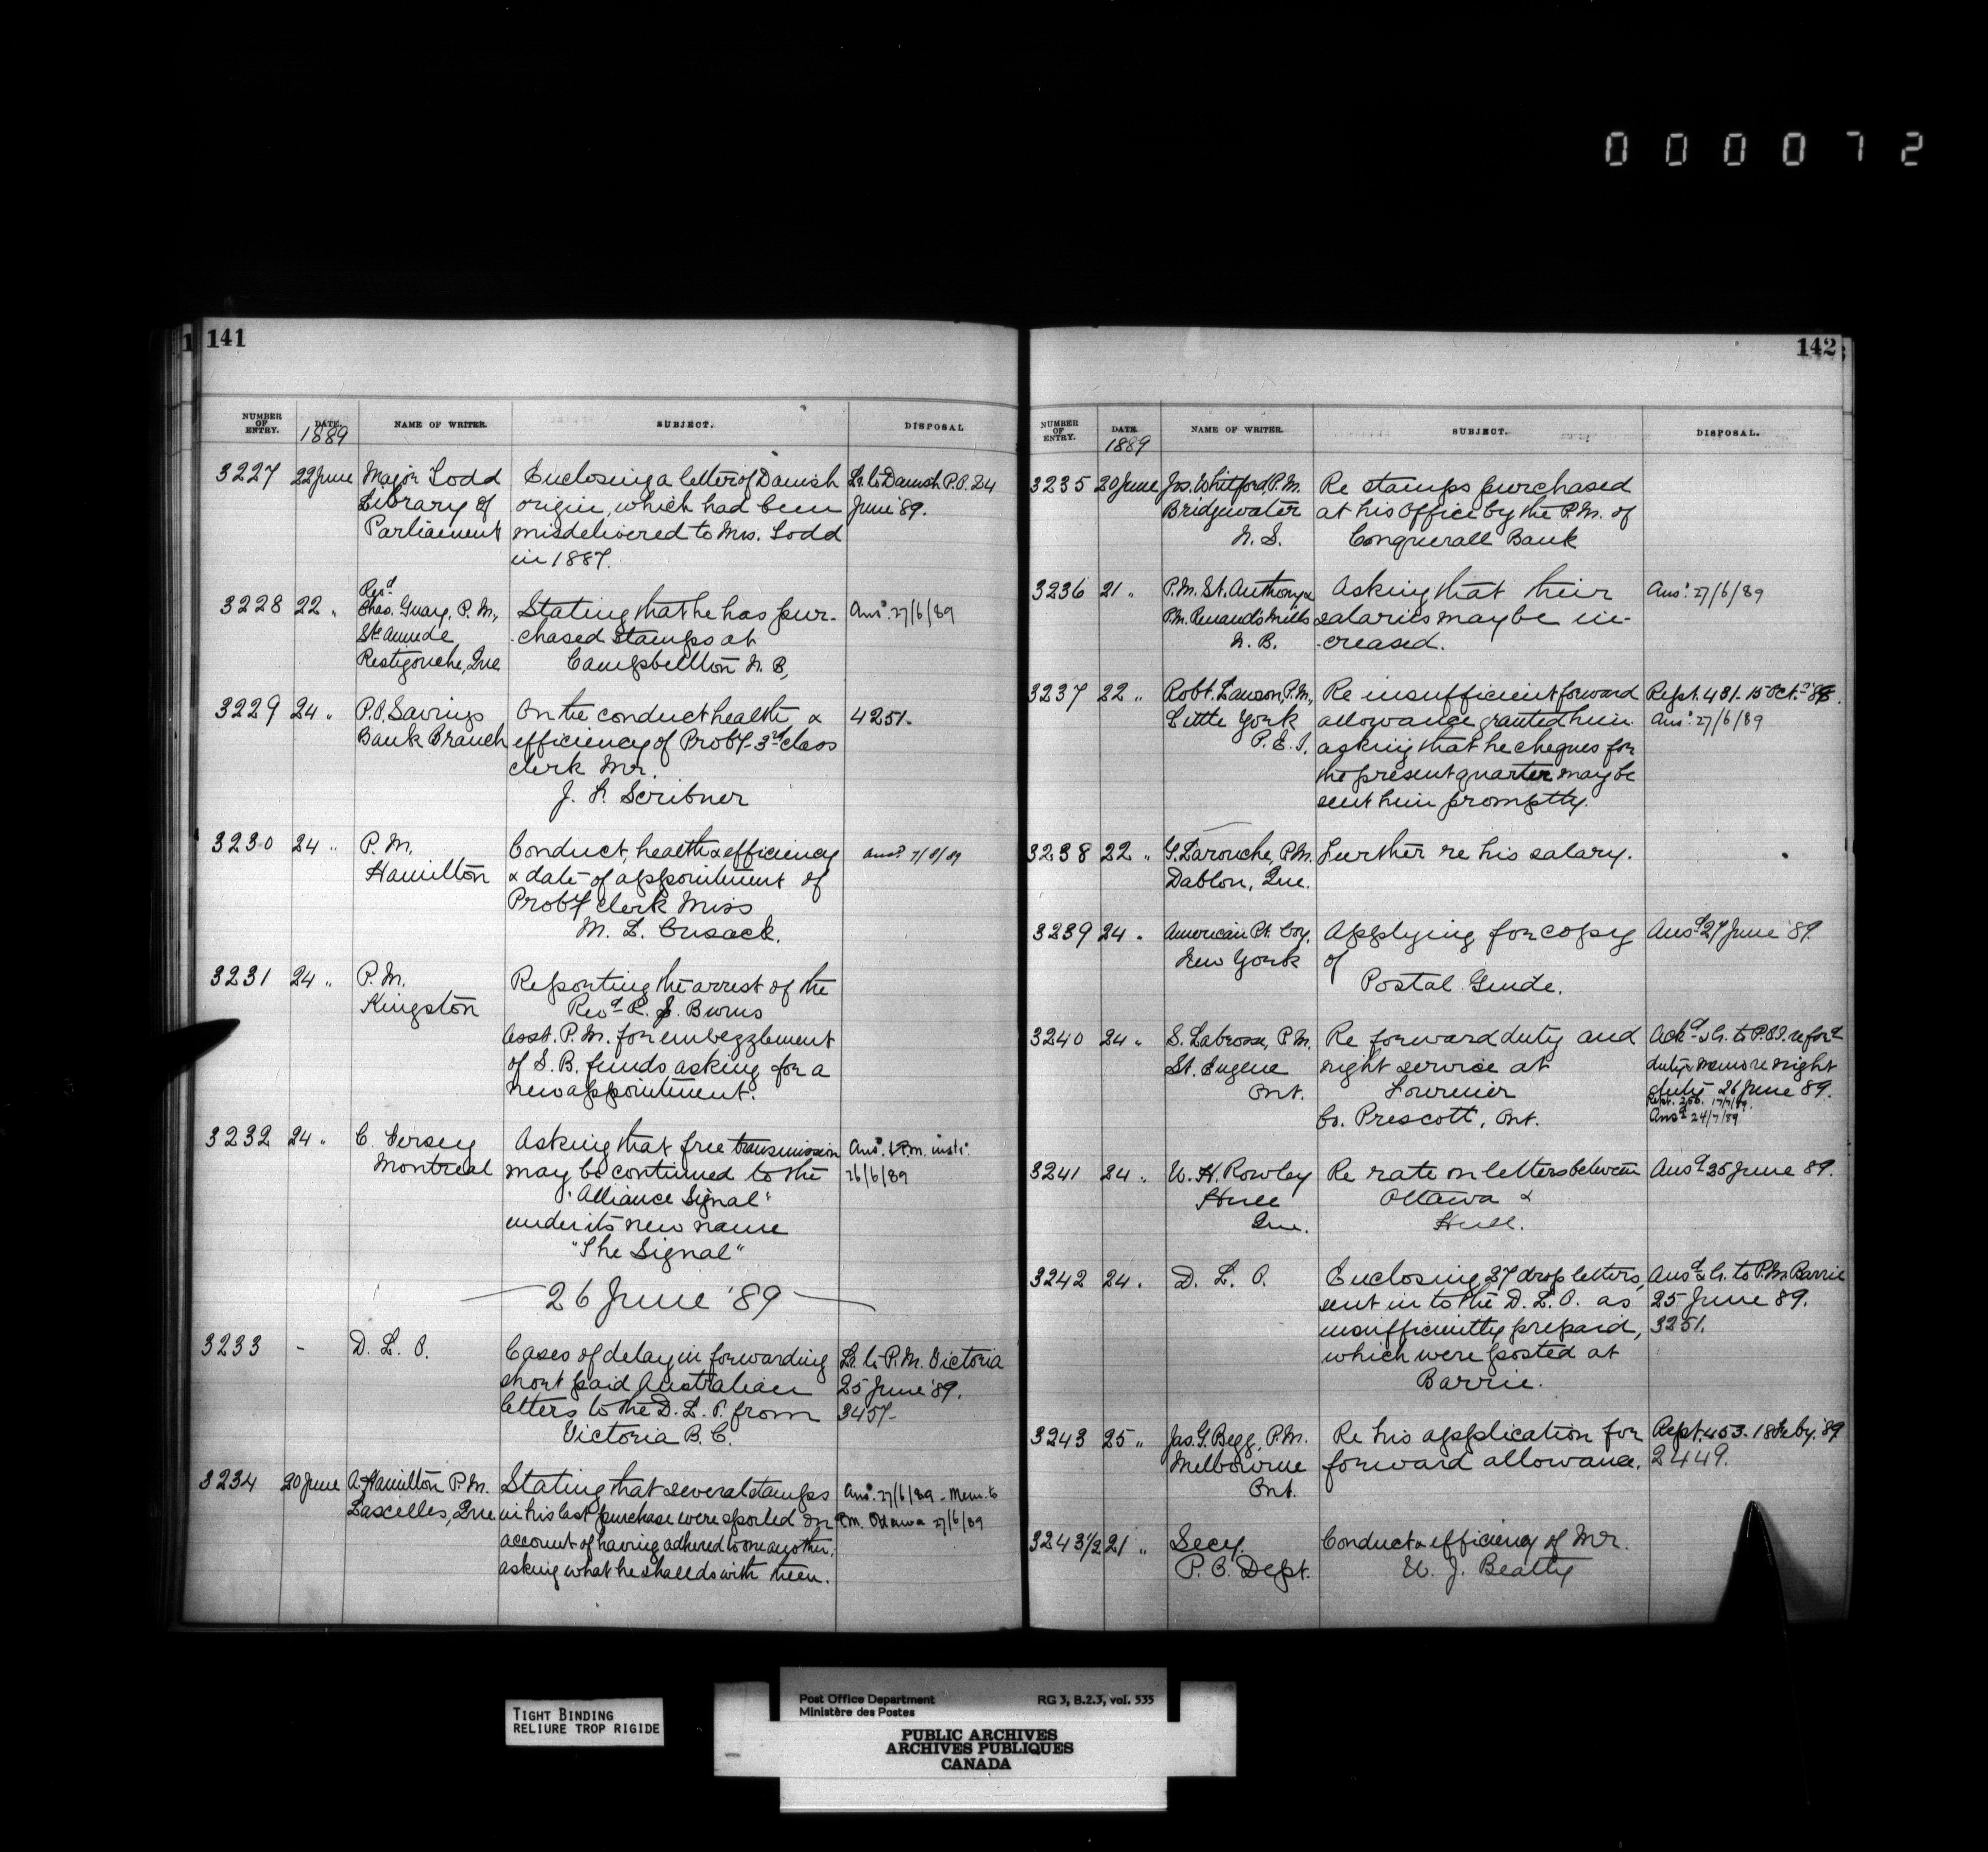 000072
141
NUMBER OF ENTRY. DATE. 1889 NAME OF WRITER. SUBJECT. DISPOSAL
3227 22 June Major Todd Enclosing a letter of Danish Lr. to Danish P.O. 24
Library of origin, which had been June '89.
Parliament misdelivered to Mrs. Todd
in 1887.
Revd
3228 22 " Chas. Guay, P.M., Stating that he has pur- Ansd. 27/6/89
Ste Anne de chased stamps at
Restigouche, Que Campbellton N.B,
3229 24 " P.O. Savings On the conduct health & 4251.
Bank Branch efficiency of Proby. 3rd class
clerk Mr.
J. F. Scribner
3230 24 " P.M. Conduct, health & efficiency Ansd.
Hamilton & date of appointment of
Proby clerk Miss
M. L. Cusack.
3231 24 " P.M. Reporting the arrest of the
Kingston Revd R. S. Burns
Asst. P.M. for embezzlement
of S.B. funds asking for a
new appointment.
3232 24 " C. Versey Asking that free transmission Ansd. & P.M. instd.
Montreal may be continued to the 26/6/89
"Alliance Signal"
under its new name
"The Signal"
26 June '89
3233 - D. L. O. Cases of delay in forwarding Lr. to P.M. Victoria
short paid Australian 25 June '89.
letters to the D. L. O. from 3457-
Victoria B.C.
3234 20 June A. Hamilton P.M. Stating that several stamps Ansd. 27/6/89 - Mem. to
Lascelles, Que in his last purchase were spoiled on P.M. Ottawa 27/6/89
account of having adhered to one another,
asking what he shall do with them.
142
NUMBER OF ENTRY. DATE. 1889 NAME OF WRITER. SUBJECT. DISPOSAL.
3235 20 June Jos. Whitford, P.M. Re stamps purchased
Bridgewater at his office by the P.M. of
N.S. Conquerall Bank
3236 21 " P.M. St. Anthony & Asking that their Ansd. 27/6/89
P.M. Renauds Mills salaries may be in-
N.B. creased.
3237 22 " Robt. Lawson, P.M., Re insufficient forward Rept. 481. 15 Oct. '88.
Little York allowance granted him Ansd. 27/6/89
P.E.I. asking that he cheques for
the present quarter may be
sent him promptly.
3238 22 " G. Larouche, P.M. Further re his salary.
Dablon, Que.
3239 24 " American Pt. Coy. Applying for copy Ansd 27 June '89.
New York of
Postal Guide.
3240 24 " S. Labrosse, P.M. Re forward duty and Ackd & Lr. to P.O.I. re ford
St. Eugene night service at duty & memo re night
Ont. Fournier duty 26 June 89.
Co. Prescott, Ont. Rept. 17/7/89.
Ansd 24/7/89
3241 24 " W. H. Rowley Re rate on letters between Ansd 25 June 89.
Hull Ottawa &
Que. Hull.
3242 24 " D. L. O. Enclosing 27 drop letters, Ansd & Lr. to P.M. Barrie
sent in to the D. L. O. as 25 June 89.
insufficiently prepaid, 3251.
which were posted at
Barrie.
3243 25 " Jas. G. Begg, P.M. Re his application for Rept. 453. 18 Feby. '89
Melbourne forward allowance. 2449.
Ont.
3243 1/2 21 " Secy. Conduct & efficiency of Mr.
P.O. Dept. W. J. Beatty
TIGHT BINDING
RELIURE TROP RIGIDE
Post Office Department RG 3, B.2.3, vol. 535
Ministère des Postes
PUBLIC ARCHIVES
ARCHIVES PUBLIQUES
CANADA